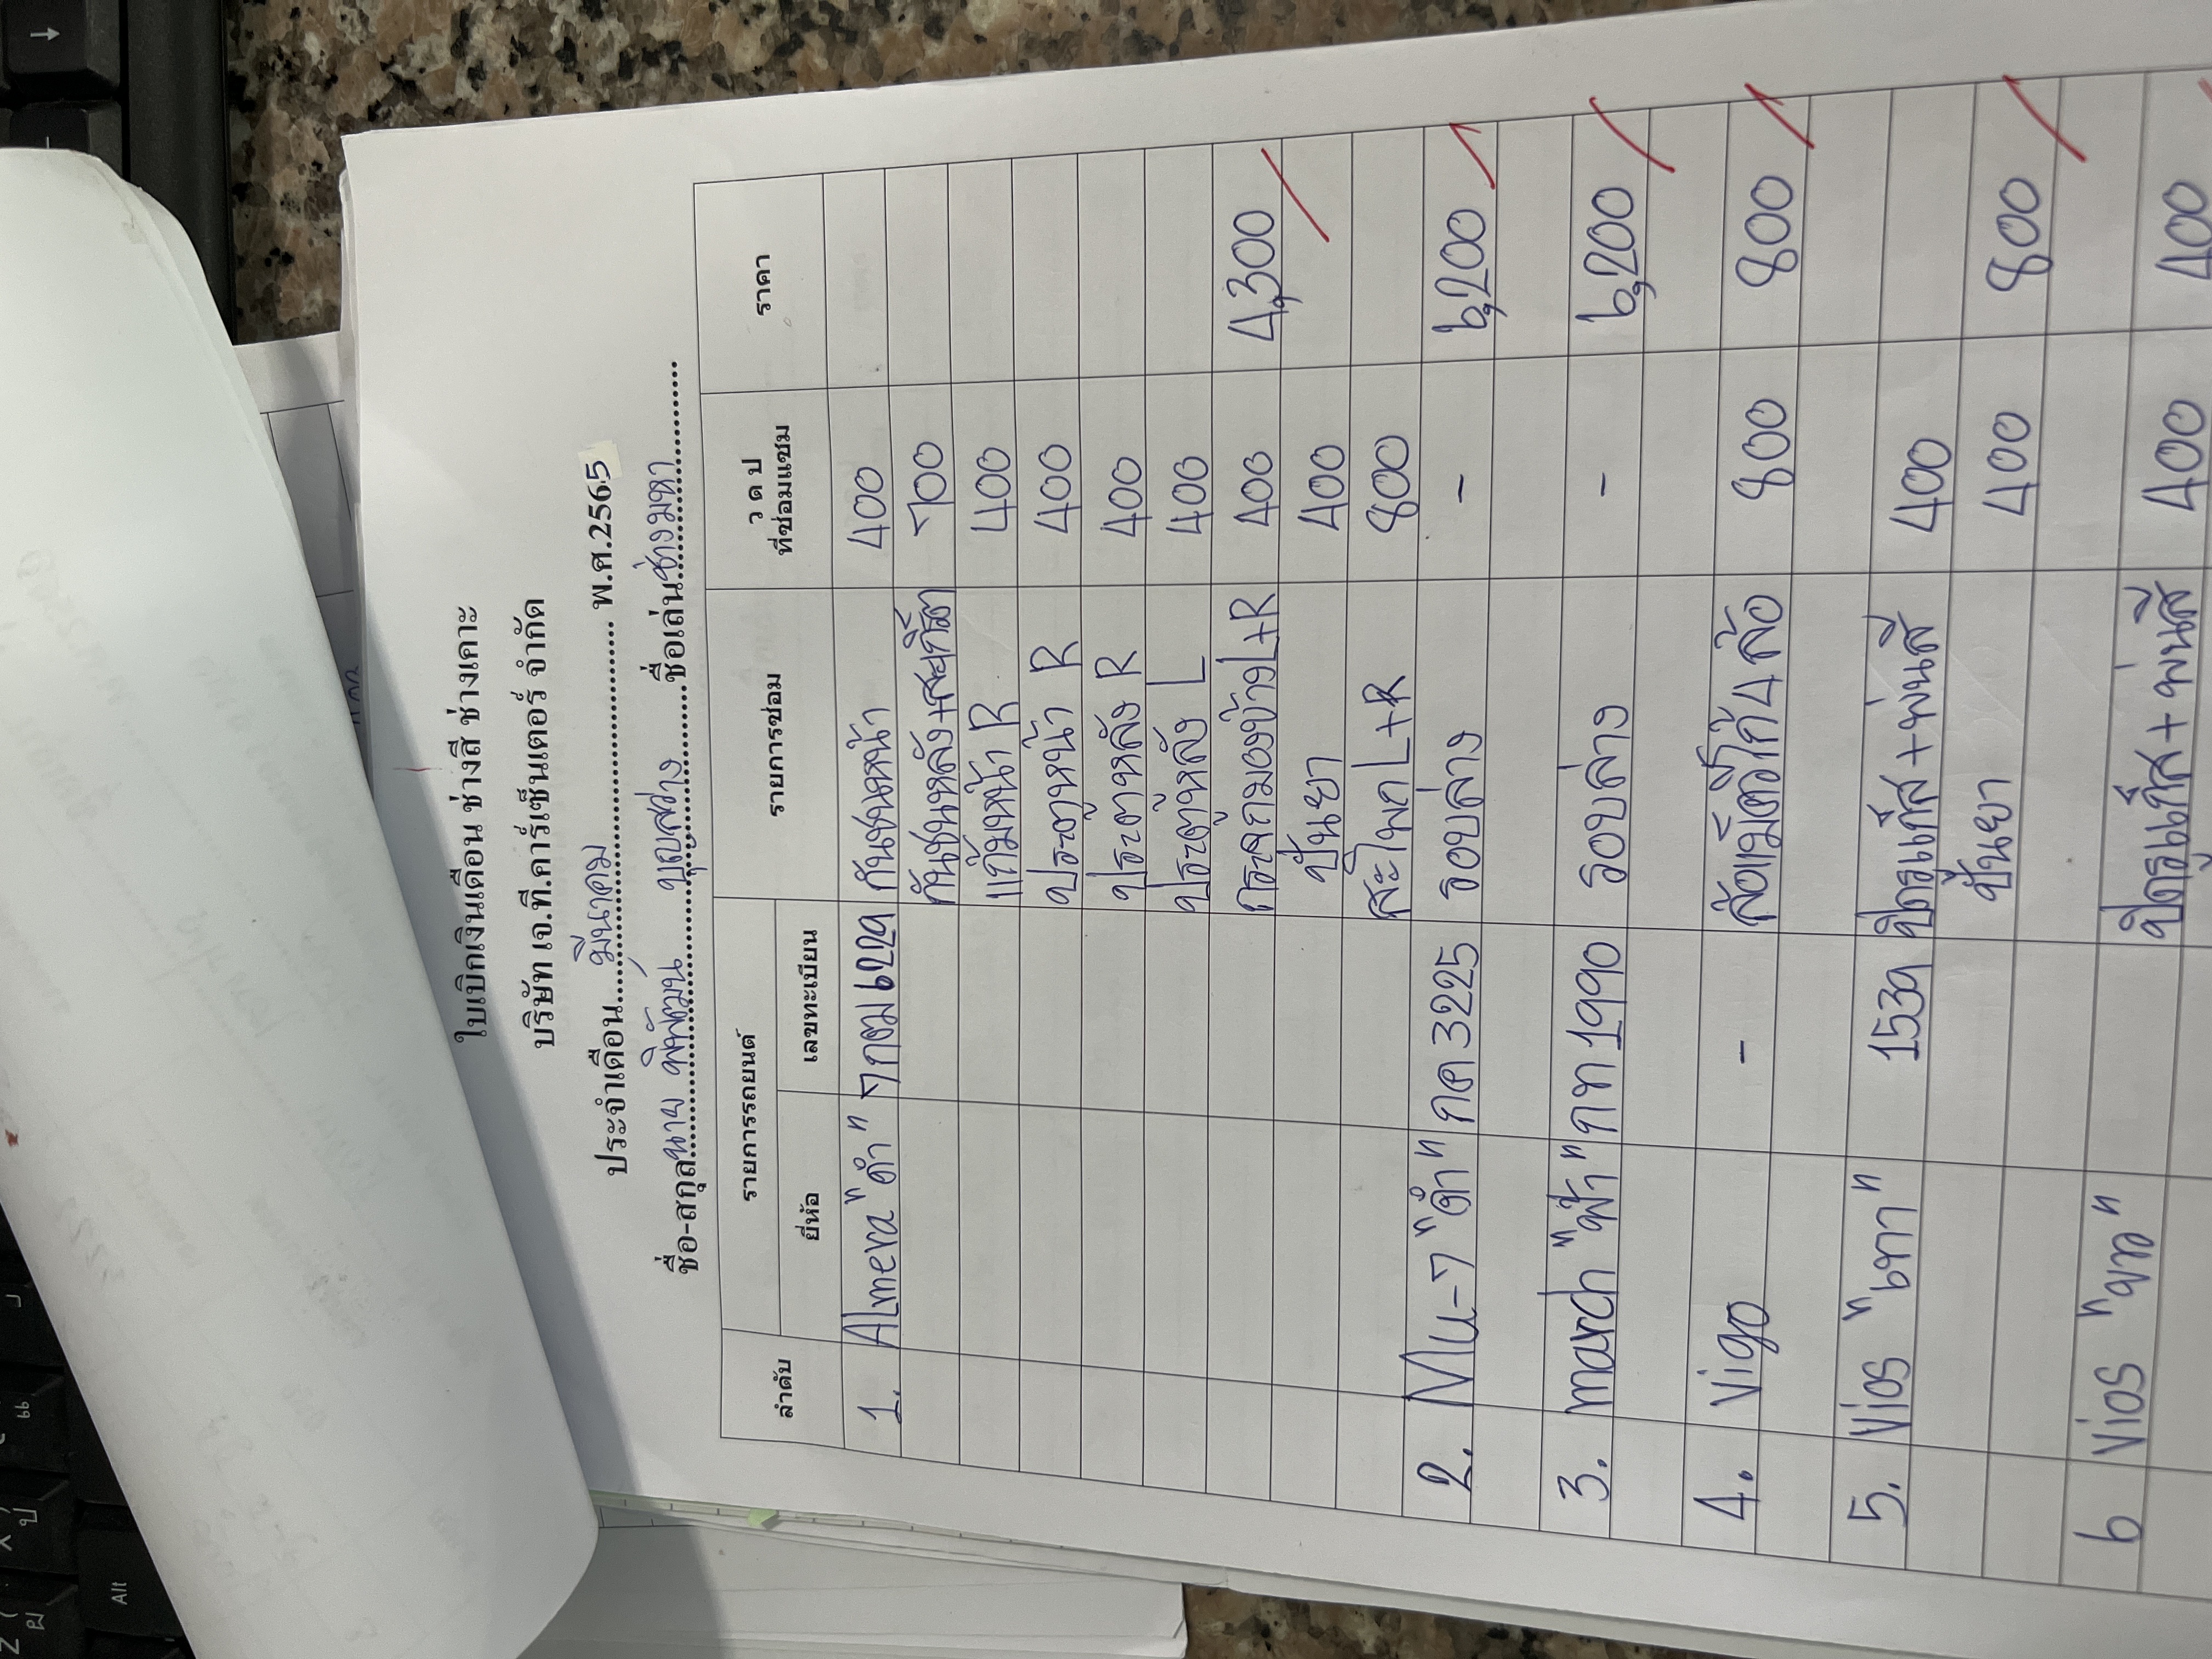 ใบเบิกเงินเดือน ช่างสี ช่างเคาะ
บริษัท เจ.ที.คาร์เซ็นเตอร์ จำกัด
ประจำเดือน....มีนาคม.... พ.ศ.2565
ชื่อ-สกุล นาย พิพัฒน์ บุญสว่าง ชื่อเล่น ช่างมหา
ลำดับ รายการรถยนต์ รายการซ่อม ว ด ป ที่ซ่อมแซม ราคา
ยี่ห้อ เลขทะเบียน
1. Almera "ดำ" 7กฒ6229 กันชนหน้า 400
กันชนหลัง+สเกิ๊ต 700
แก้มหน้า R 400
ประตูหน้า R 400
ประตูหลัง R 400
ประตูหลัง L 400
กระจกมองข้าง L+R 400 4,300
ปั้นยา 400
สะโพก L+R 800
2. Mu-7 "ดำ" กค 3225 รอบล่าง - 6,200
3. march "ฟ้า" กท 1990 รอบล่าง - 6,200
4. Vigo - ล้อแม็ตโก้ 4 ล้อ 800 800
5. Vios "เทา" 1539 ปิดแก๊ส+พ่นสี 400
ปั้นยา 400 800
6 Vios "ขาว" ปิดแก๊ส+พ่นสี 400 400